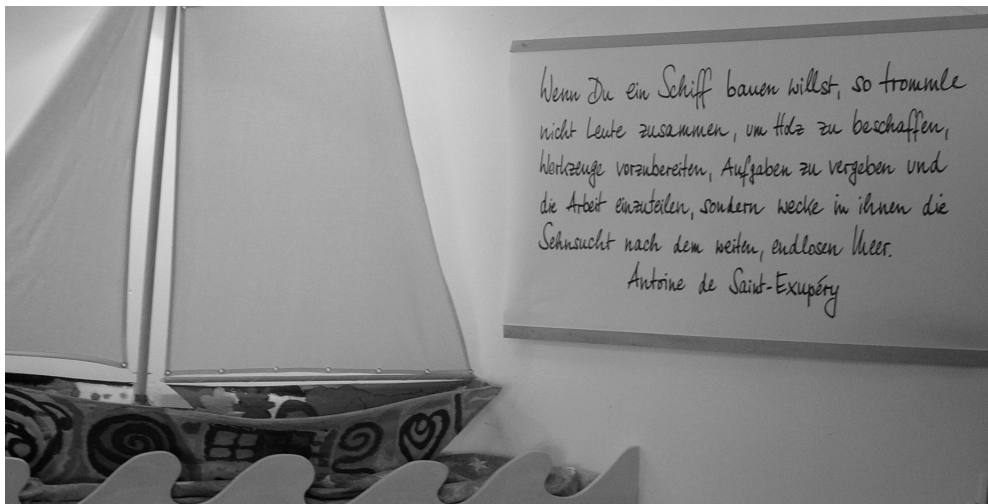 Wenn Du ein Schiff bauen willst, so trommle
nicht Leute zusammen, um Holz zu beschaffen,
Werkzeuge vorzubereiten, Aufgaben zu vergeben und
die Arbeit einzuteilen, sondern wecke in ihnen die
Sehnsucht nach dem weiten, endlosen Meer.
Antoine de Saint-Exupéry